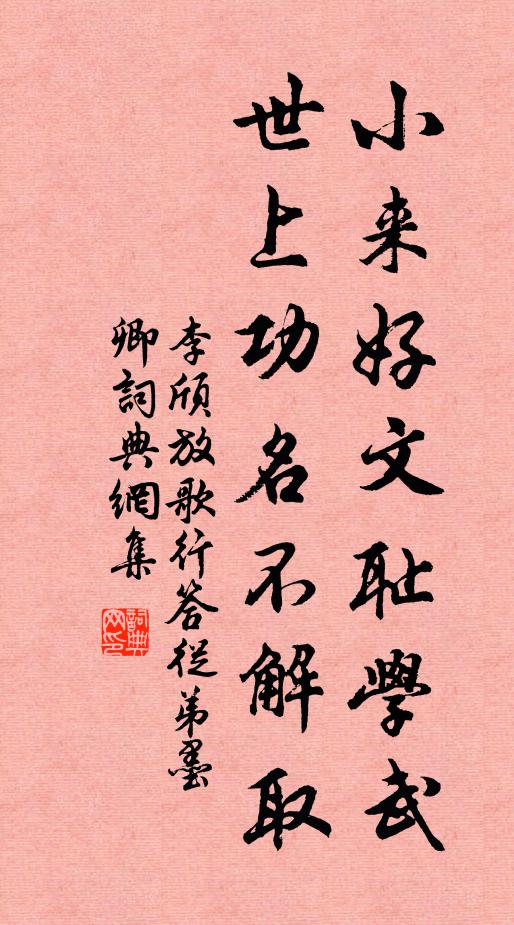 小来好文耻學武
世上功名不解取
李頎放歌行答從弟墨
卿詞典網集
詞典
网印